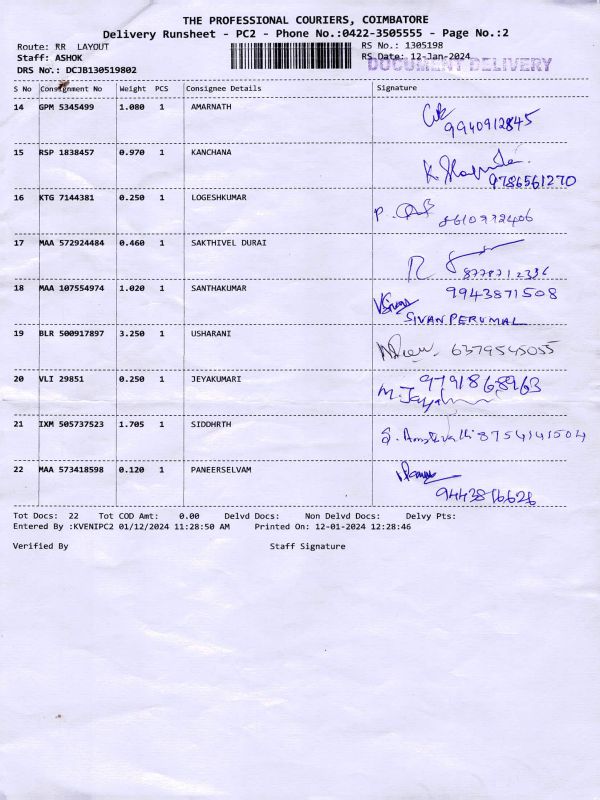 THE PROFESSIONAL COURIERS, COIMBATORE
Delivery Runsheet - PC2 - Phone No.:0422-3505555 - Page No.:2
Route: RR LAYOUT RS No.: 1305198
Staff: ASHOK RS Date: 12-Jan-2024
DOCUMENT DELIVERY
DRS No.: DCJB130519802
S No Consignment No Weight PCS Consignee Details Signature
14 GPM 5345499 1.080 1 AMARNATH
9940912845
15 RSP 1838457 0.970 1 KANCHANA
9786561270
16 KTG 7144381 0.250 1 LOGESHKUMAR
P.
17 MAA 572924484 0.460 1 SAKTHIVEL DURAI
R
18 MAA 107554974 1.020 1 SANTHAKUMAR 9943871508
SIVAN PERUMAL
19 BLR 500917897 3.250 1 USHARANI
6379545055
20 VLI 29851 0.250 1 JEYAKUMARI 9791868963
21 IXM 505737523 1.705 1 SIDDHRTH
8754141504
22 MAA 573418598 0.120 1 PANEERSELVAM
Tot Docs: 22 Tot COD Amt: 0.00 Delvd Docs: Non Delvd Docs: Delvy Pts:
Entered By :KVENIPC2 01/12/2024 11:28:50 AM Printed On: 12-01-2024 12:28:46
Verified By Staff Signature